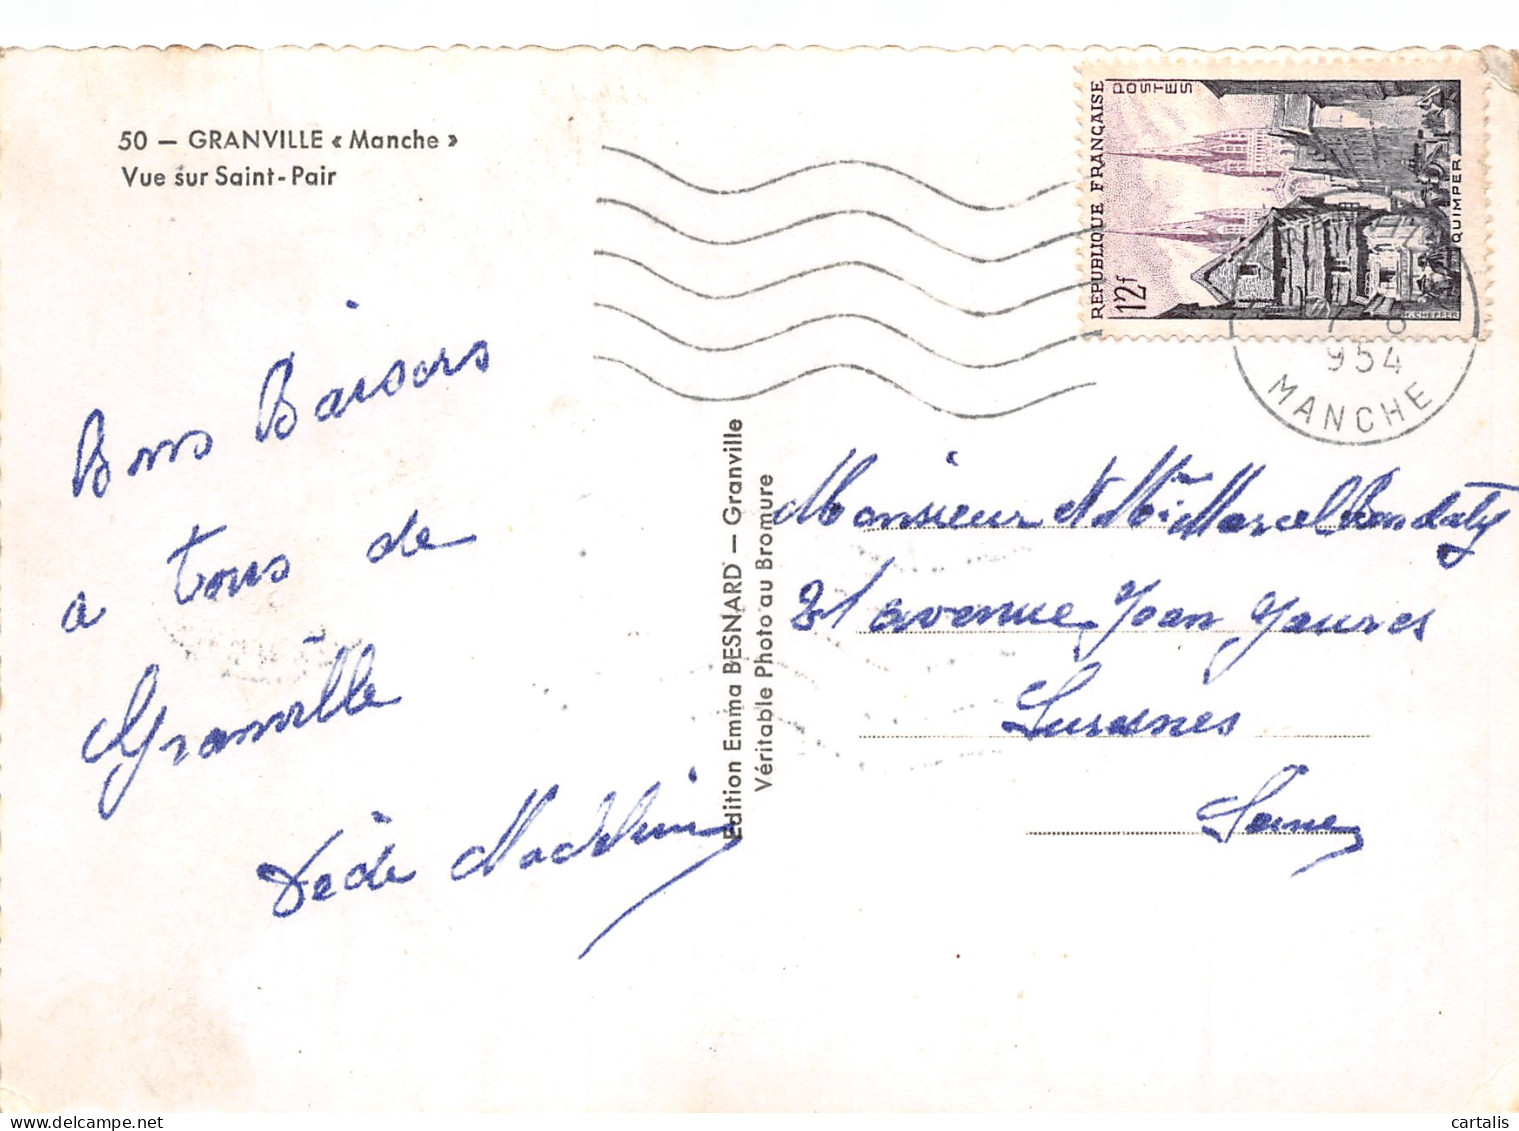 50 — GRANVILLE « Manche »
Vue sur Saint-Pair
REPUBLIQUE FRANÇAISE
POSTES
12f
QUIMPER
H.CHEFFER
954
MANCHE
Bons Baisers
a tous de
Granville
Dédé Madeleine
Edition Emma BESNARD — Granville
Véritable Photo au Bromure
Monsieur et Mme Marcel
21 avenue Jean Jaures
Suresnes
Seine
cartalis